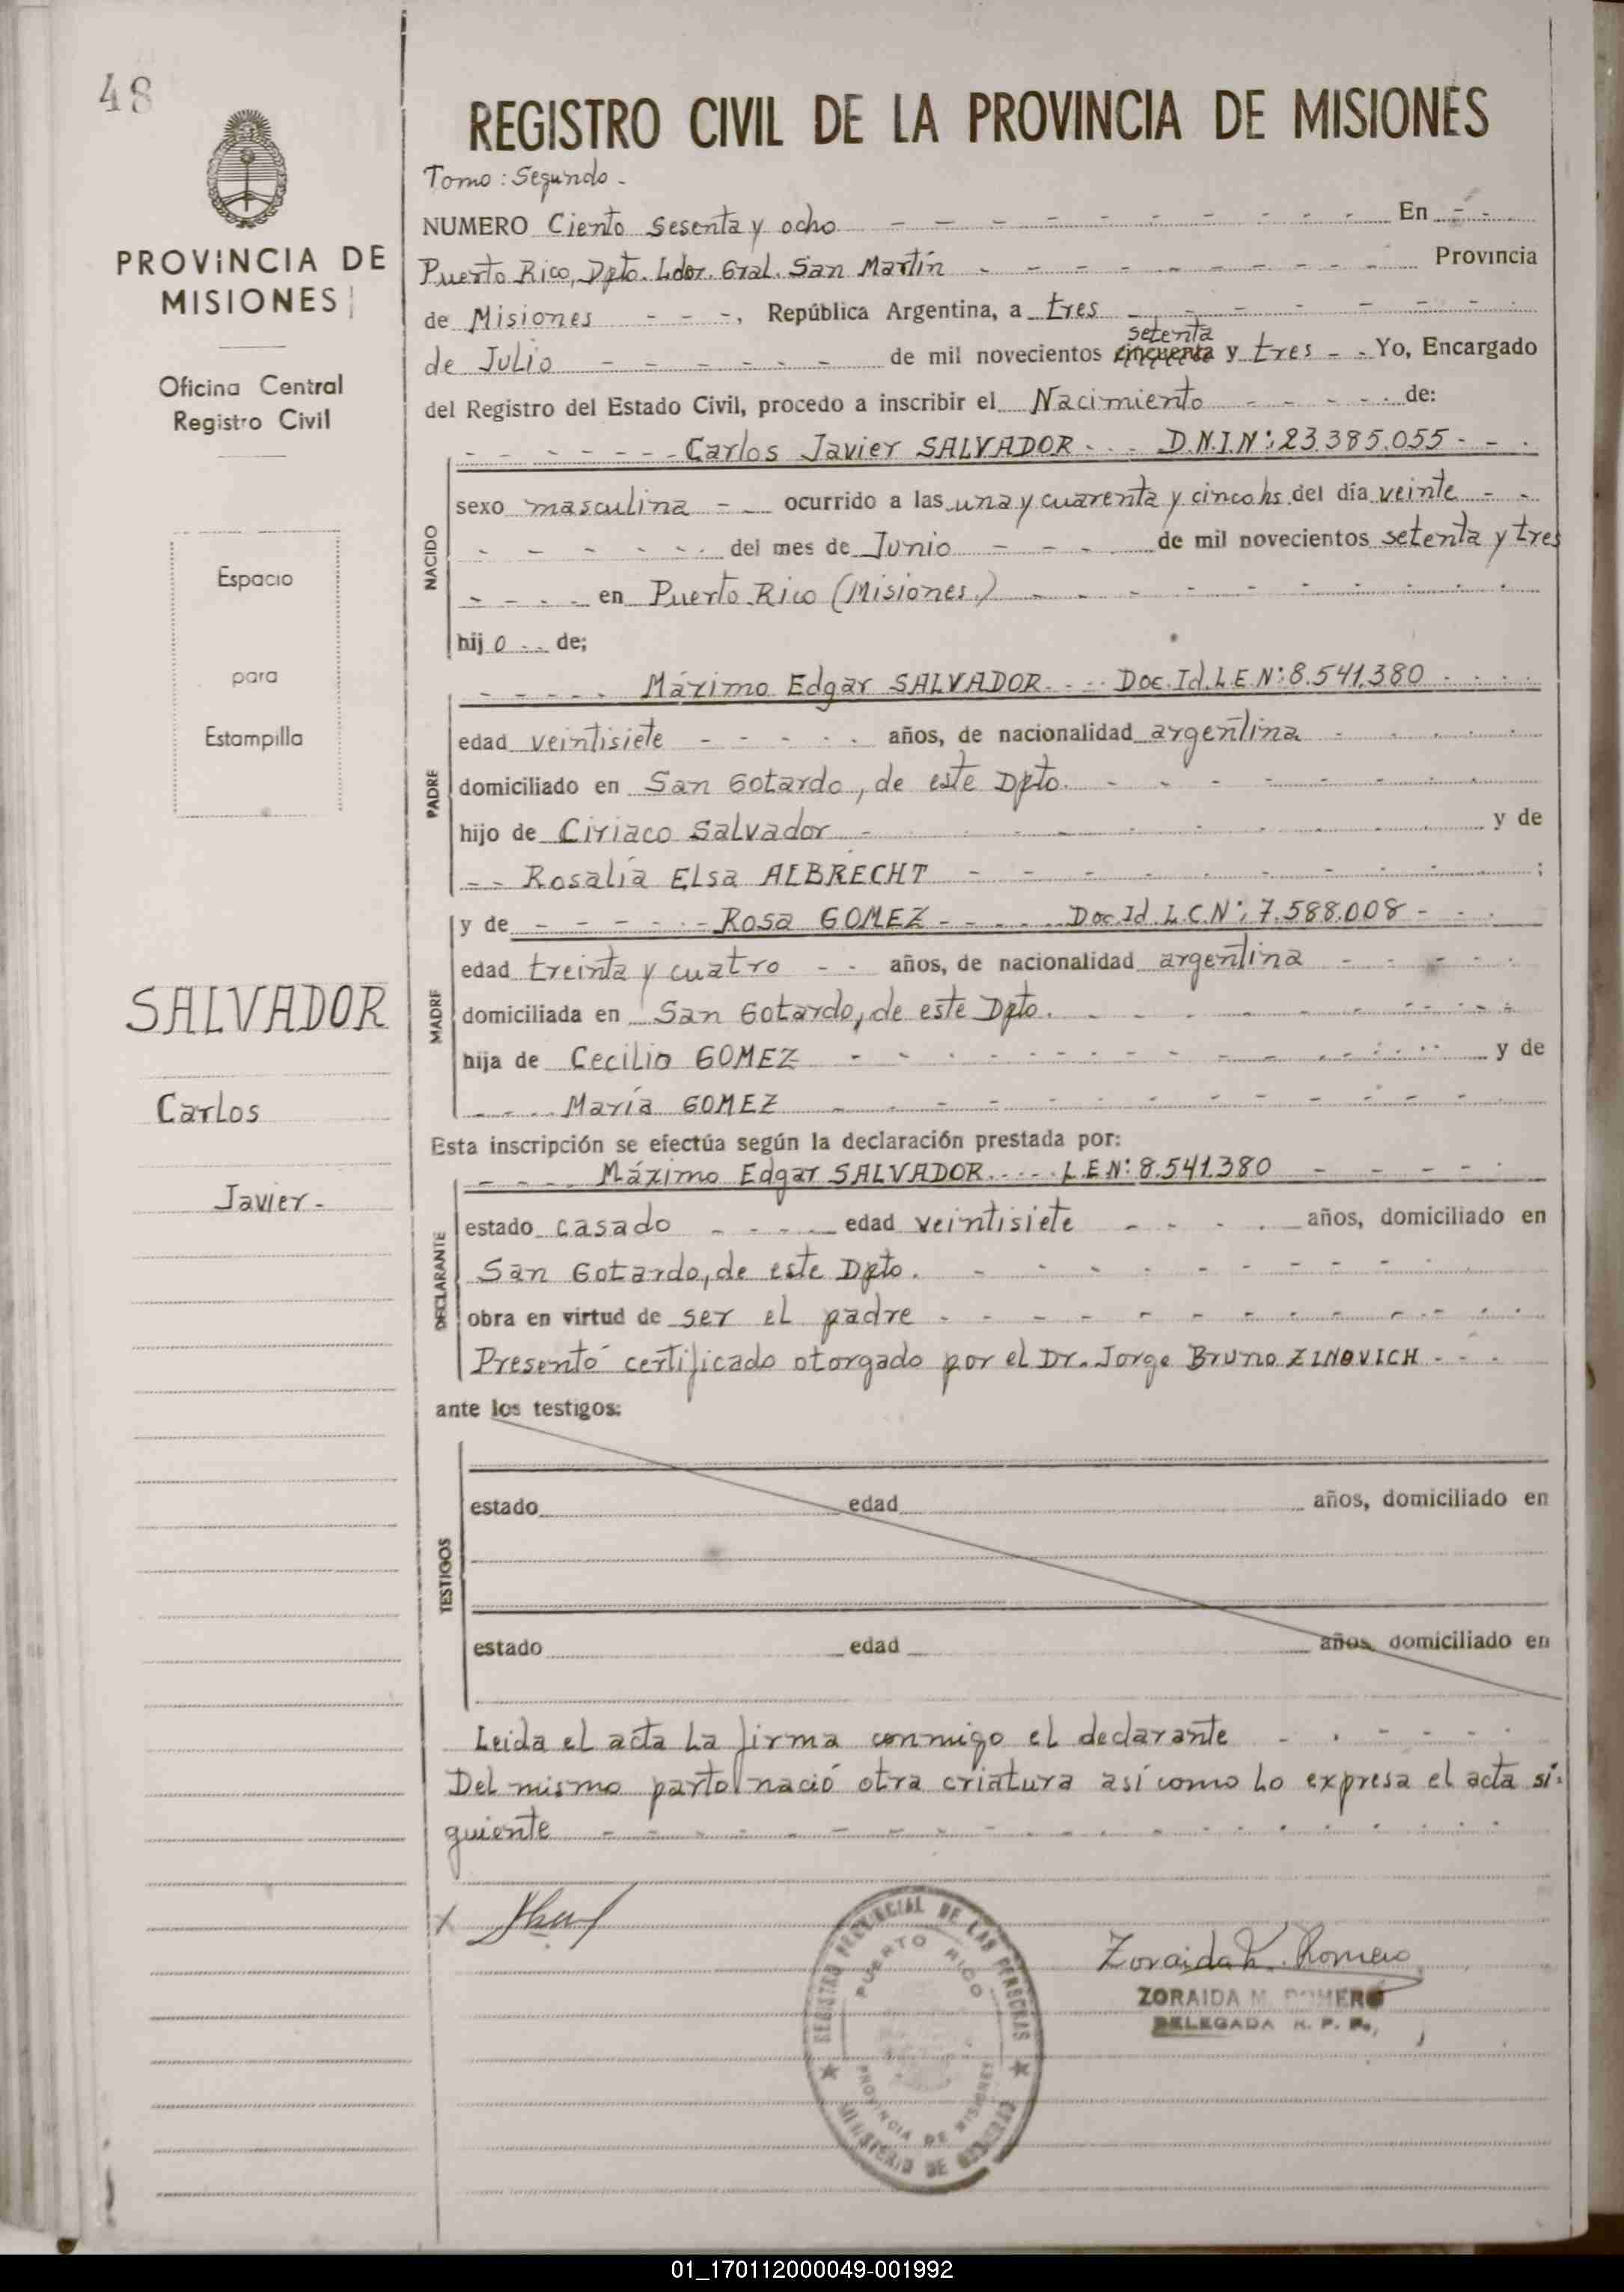 48
PROVINCIA DE
MISIONES
Oficina Central
Registro Civil
Espacio
para
Estampilla
SALVADOR
Carlos
Javier -
REGISTRO CIVIL DE LA PROVINCIA DE MISIONES
Tomo: Segundo -
NUMERO Ciento Sesenta y ocho En
Puerto Rico, Dpto. Ldor. Gral. San Martín Provincia
de Misiones - - -, República Argentina, a tres
setenta
de Julio de mil novecientos cincuenta y tres - - Yo, Encargado
del Registro del Estado Civil, procedo a inscribir el Nacimiento de:
Carlos Javier SALVADOR - - - D.N.I.Nº: 23.385.055 - - -
NACIDO
sexo masculina - - ocurrido a las una y cuarenta y cinco hs. del día veinte - -
del mes de Junio - - - de mil novecientos setenta y tres
en Puerto Rico (Misiones)
hijo - - de;
PADRE
Máximo Edgar SALVADOR - - - Doc. Id. L.E.Nº: 8.541.380
edad veintisiete años, de nacionalidad argentina
domiciliado en San Gotardo, de este Dpto.
hijo de Ciriaco Salvador y de
- - Rosalía Elsa ALBRECHT ;
MADRE
y de Rosa GOMEZ Doc. Id. L.C.Nº: 7.588.008 -
edad treinta y cuatro - - años, de nacionalidad argentina
domiciliada en San Gotardo, de este Dpto.
hija de Cecilio GOMEZ y de
María GOMEZ
Esta inscripción se efectúa según la declaración prestada por:
DECLARANTE
Máximo Edgar SALVADOR - - - L.E.Nº: 8.541.380
estado casado edad veintisiete años, domiciliado en
San Gotardo, de este Dpto.
obra en virtud de ser el padre
Presentó certificado otorgado por el Dr. Jorge Bruno ZINOVICH - - -
ante los testigos:
TESTIGOS
estado edad años, domiciliado en
estado edad años, domiciliado en
Leida el acta la firma conmigo el declarante
Del mismo parto nació otra criatura así como lo expresa el acta si-
guiente
REGISTRO PROVINCIAL DE LAS PERSONAS
PUERTO RICO
PROVINCIA DE MISIONES
MINISTERIO DE GOBIERNO
Zoraida M. Romero
ZORAIDA M. ROMERO
DELEGADA R. P. P.
01_170112000049-001992